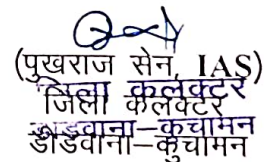 (पुखराज सेन, IAS)
जिला कलेक्टर
जिला कलेक्टर
डीडवाना–कुचामन
डीडवाना–कुचामन